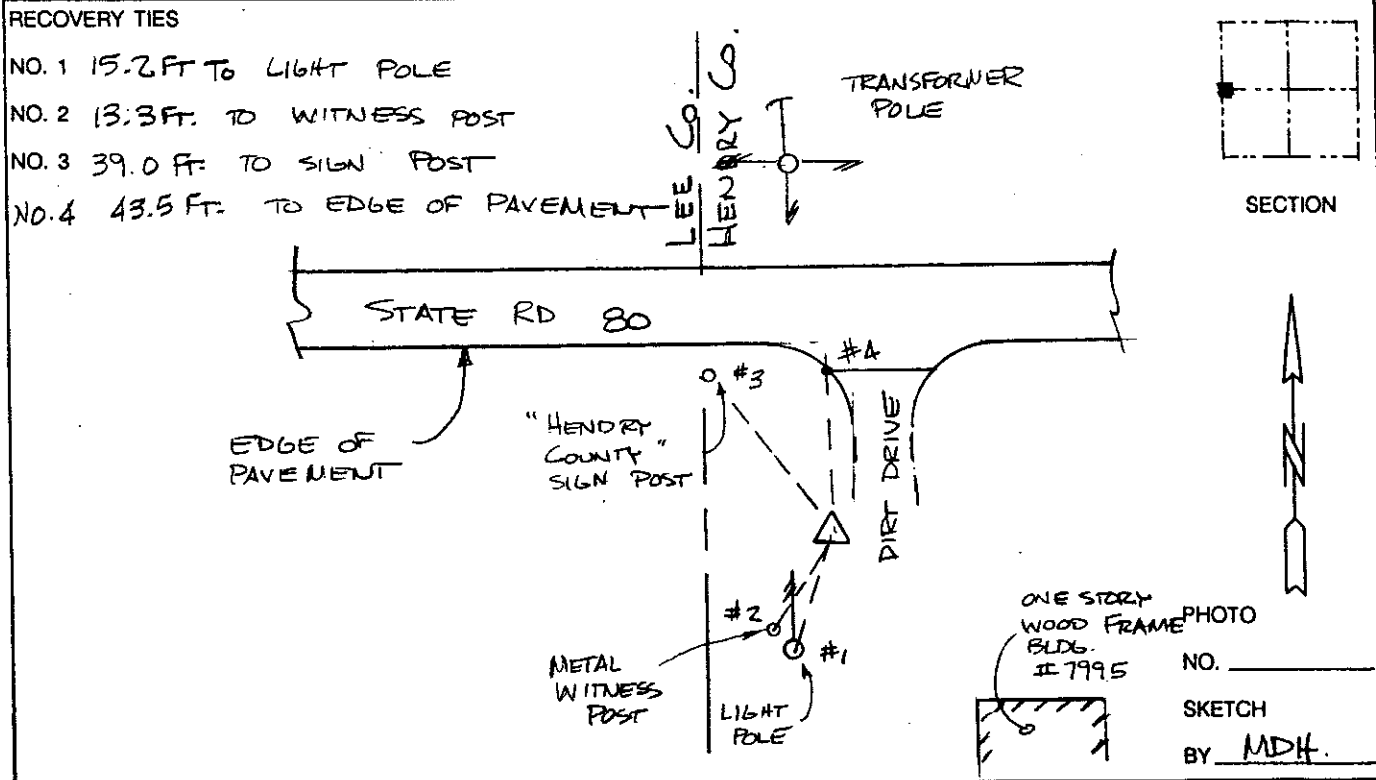 RECOVERY TIES
NO. 1 15.2 FT TO LIGHT POLE
NO. 2 13.3 FT. TO WITNESS POST
NO. 3 39.0 FT. TO SIGN POST
NO. 4 43.5 FT. TO EDGE OF PAVEMENT
LEE CO.
HENDRY CO.
TRANSFORMER
POLE
SECTION
STATE RD 80
#3
#4
EDGE OF
PAVEMENT
"HENDRY
COUNTY"
SIGN POST
DIRT DRIVE
N
#2
#1
METAL
WITNESS
POST
LIGHT
POLE
ONE STORY
WOOD FRAME
BLDG.
#7995
PHOTO
NO.
SKETCH
BY MDH.